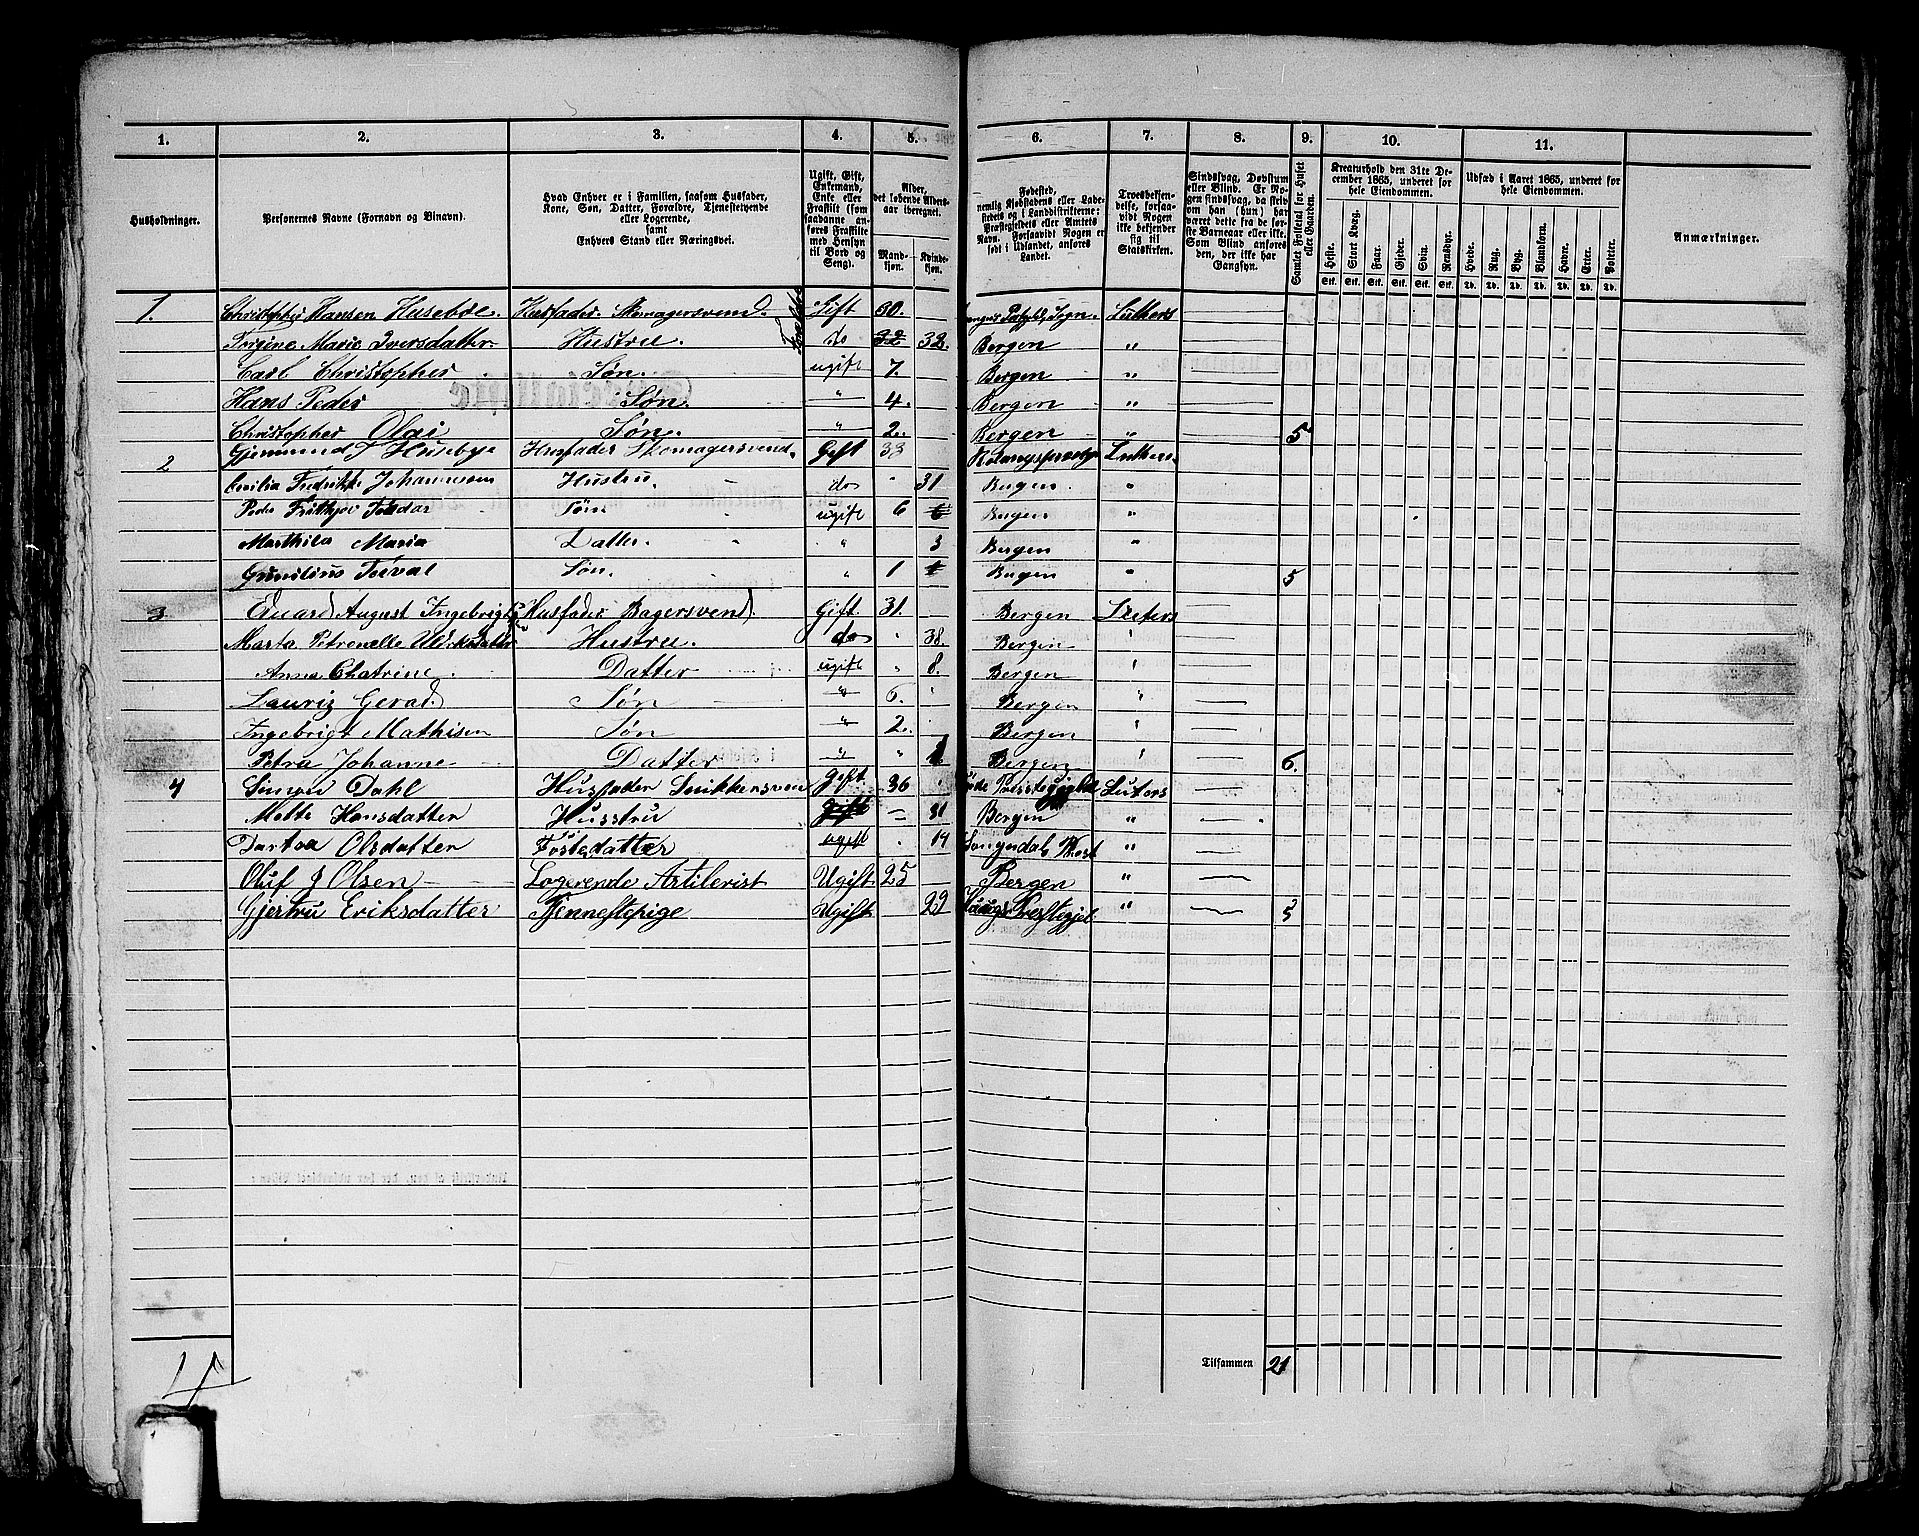 1. 2. 3. 4. 5. 6. 7. 8. 9. 10. 11.
Husholdninger.
Personernes Navne (Fornavn og Binavn).
Hvad Enhver er i Familien, saasom Husfader, Kone, Søn, Datter, Forældre, Tjenestetyende eller Logerende, samt Enhvers Stand eller Næringsvei.
Ugift, Gift, Enkemand, Enke eller Fraskilt (som saadanne anføres Fraskilte med Hensyn til Bord og Seng).
Alder, det løbende Alders-aar iberegnet.
Mandkjøn. Kvindekjøn.
Fødested, nemlig Kjøbstadens eller Ladestedets og i Landdistrikterne: Præstegjeldets eller Amtets Navn. Forsaavidt Nogen er født i Udlandet, anføres Landet.
Troesbekjendelse, forsaavidt Nogen ikke bekjender sig til Statskirken.
Sindssvag, Døvstum eller Blind. Er Nogen sindssvag, da skulde han (hun) har været dette fra de første Barneaar eller ikke. Som Blind anføres den, der ikke har Gangsyn.
Samlet Folketal for Huset eller Gaarden.
Kreaturhold den 31te December 1865, underet for hele Eiendommen.
Heste. Stort Kvæg. Faar. Gjeder. Svin. Rensdyr.
Udsæd i Aaret 1865, underet for hele Eiendommen.
Hvede. Rug. Byg. Blandkorn. Havre. Erter. Poteter.
Anmærkninger.
Stk. Stk. Stk. Stk. Stk. Stk. Td. Td. Td. Td. Td. Td. Td.
1. Christopher Hansen Huseboe. Husfader Skomagersvend Gift 30. Sogn. Luthers
Jorgine Marie Iversdatter Hustru. do 32 32. Bergen "
Carl Christopher Søn. ugift 7. Bergen "
Hans Peder Søn. " 4. Bergen "
Christopher Olai Søn. " 2. Bergen " 5
2 Gjermund J Husebye Husfader Skomagersvend. Gift 33 Luthers.
Cecilia Fredrikke Johannesen Hustru. do " 31 Bergen "
Peder Frithjov Teodor Søn ugift 6 6 Bergen "
Marthila Maria Datter. " 3 Bergen "
Gunilius Torval Søn. " 1 1 Bergen " 5
3 Eduard August Ingebrigtsen Husfader Bagersvend. Gift 31. Bergen Luters
Marta Petrenelle Ulriksdatter Hustru. do " 38. Bergin "
Anna Chatrine Datter ugift " 8. Bergen "
Lauriz Gerad Søn " 6. " Bergen "
Ingebrigt Mathisen Søn " 2. Bergen "
Petra Johanne Datter " " 1. Bergen " 6.
4 Simon Dahl Husfader Snikkersven Gift 36 " Luters
Mette Hansdatter Husstru Gift — 31 Bergen "
Dartea Olsdatter Fostedatter ugift . 14 Songndal "
Oluf J Olsen Logerende Artilerist Ugift 25 Bergen "
Gjertru Eriksdatter Tjennestepige Ugift 22 Prestegjel " 5
Tilsammen 21